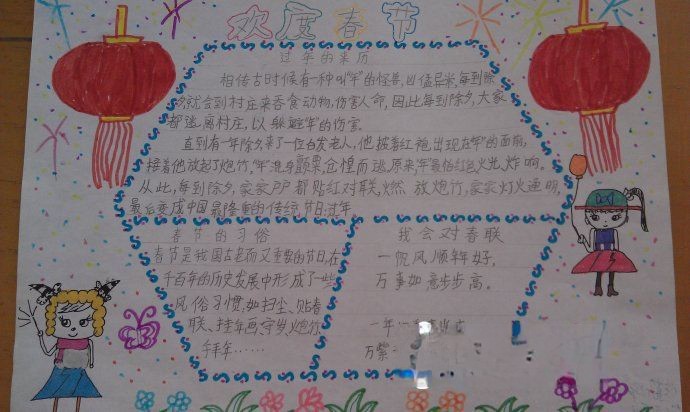 欢度春节
过年的来历
相传古时候有一种叫"年"的怪兽,凶猛异常,每到除
夕,就会到村庄来吞食动物,伤害人命,因此每到除夕,大家
都逃离村庄,以躲避"年"的伤害。
直到有一年除夕,来了一位白发老人,他披着红袍,出现在"年"的面前,
接着他放起了炮竹,"年"混身颤栗,仓惶而逃,原来,"年"最怕红色,火光,炸响。
从此,每到除夕,家家户户都贴红对联,燃放炮竹,家家灯火通明,
最后变成中国最隆重的传统节日:过年
春节的习俗
春节是我国古老而又重要的节日,在
千百年的历史发展中形成了一些
风俗习惯,如扫尘、贴春
联、挂年画,守岁,炮竹
、拜年……
我会对春联
一帆风顺年年好,
万事如意步步高。
一年
万紫